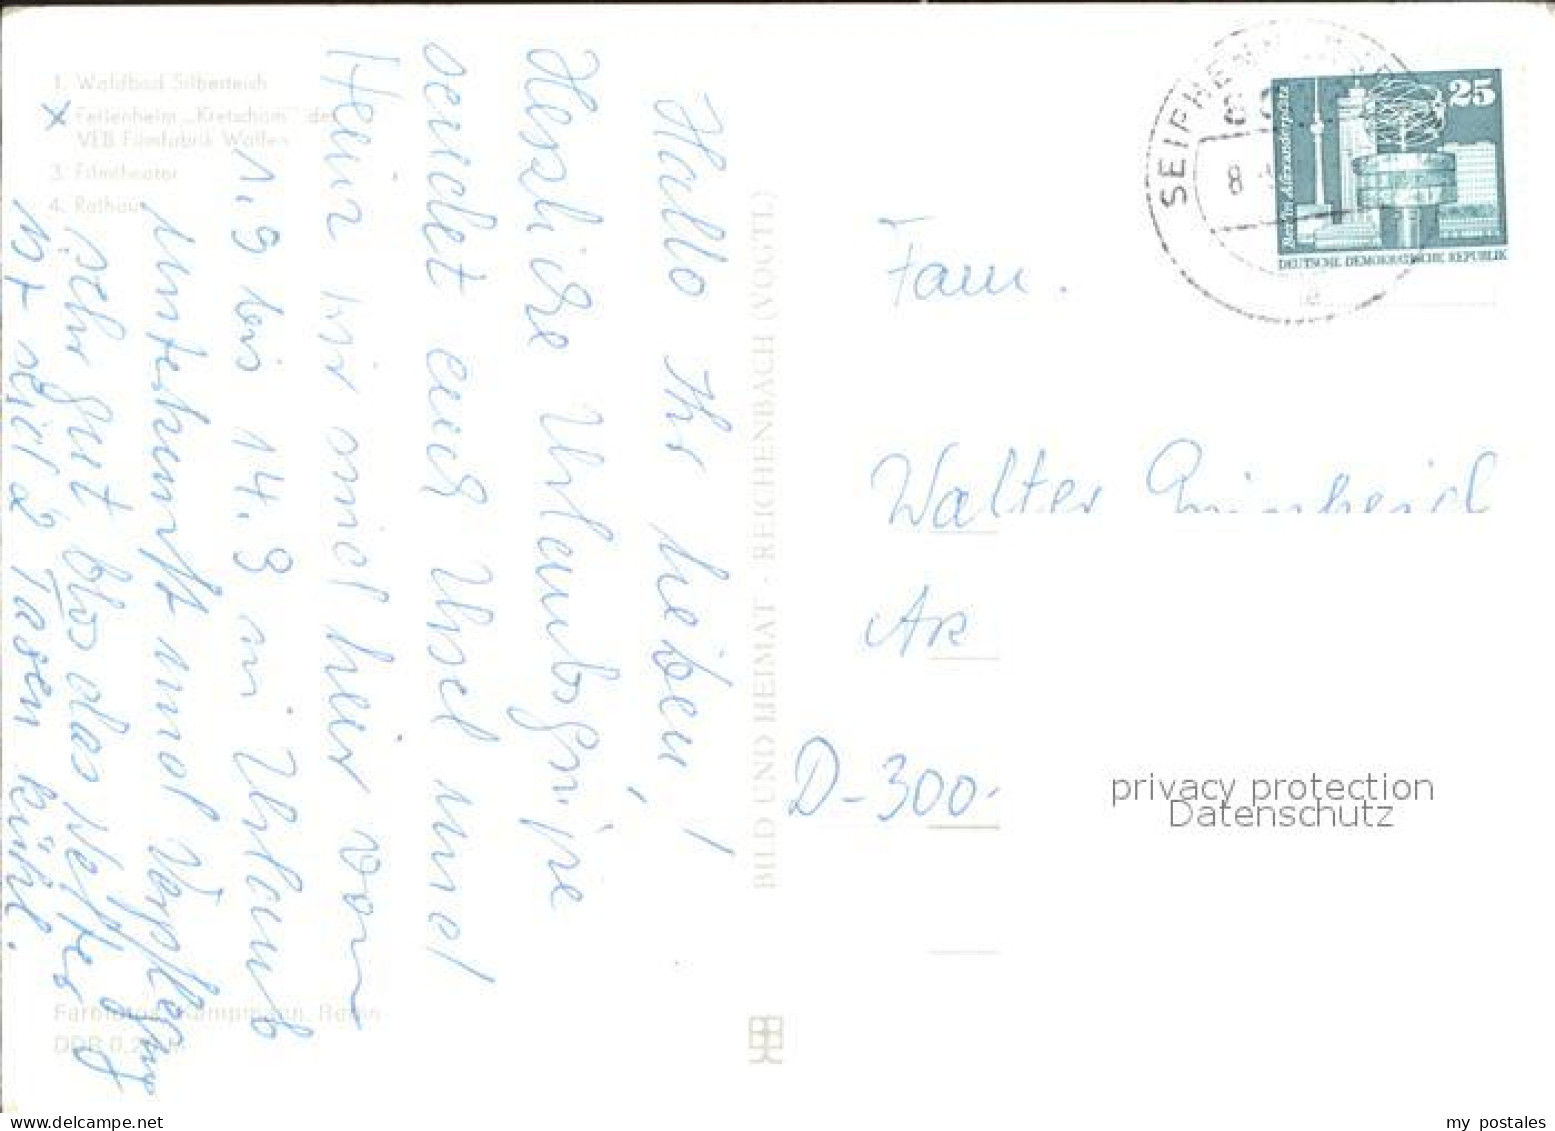 1. Waldbad Silberteich
X Ferienheim „Kretscham" des
VEB Filmfabrik Wolfen
3. Filmtheater
4. Rathaus
Hallo Ihr lieben,!
Herzliche Urlaubsgrüße
sendet euch Ursel und
Heinz wir sind hier vom
1.9 bis 14.9 in Urlaub
Unterkunft und Verpflegung
sehr gut blos das Wetter
ist seid 2 Tagen kühl.
Farbfotos: Kampmann, Berlin
DDR 0,20 M
BILD UND HEIMAT · REICHENBACH (VOGTL)
SEIFHENN
8
25
Berlin, Alexanderplatz
DEUTSCHE DEMOKRATISCHE REPUBLIK
e
Fam.
Walter
D-300
privacy protection
Datenschutz
my postales